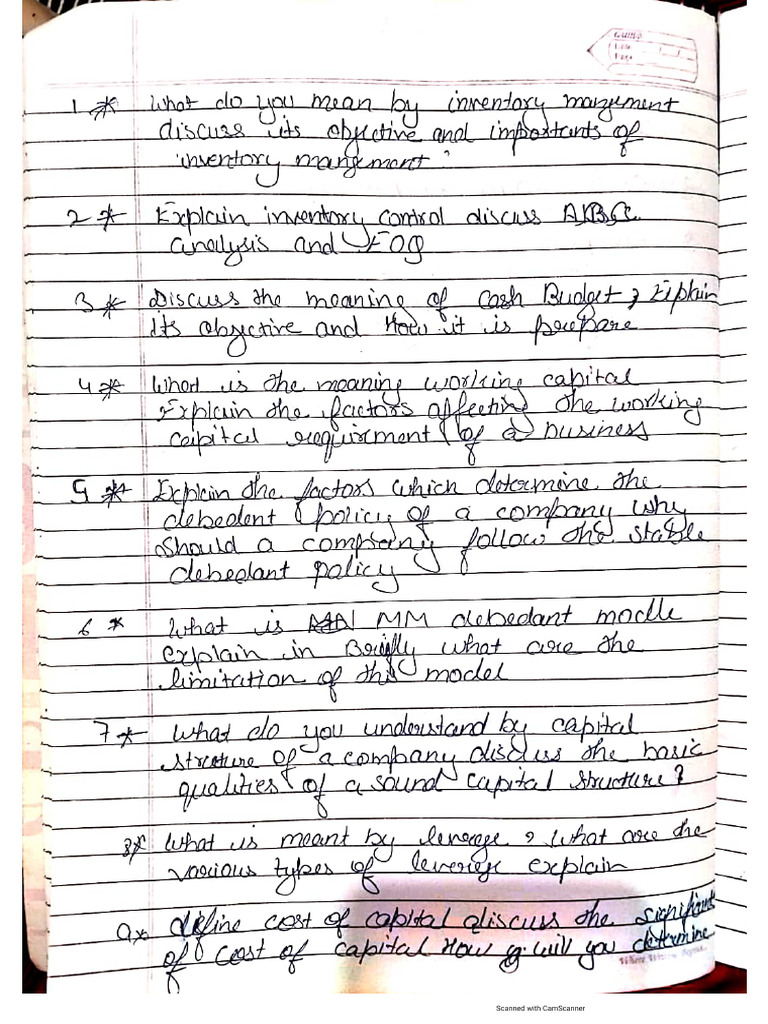 1 * What do you mean by inventory mangement
discuss its objective and importants of
inventory mangement
2 * Explain inventory control discuss A,B,C
analysis and EOQ
3 * Discuss the meaning of Cash Budget, Explain
its objective and How it is prepare
4 * What is the meaning working capital
Explain the factors affecting the working
capital requirment of a business
5 * Explain the factors which determine the
debedent policy of a company why
should a company follow the stable
debedant policy
6 * What is MM debedant modle
explain in Briefly what are the
limitation of this model
7 * What do you understand by capital
structure of a company discuss the basic
qualities of a sound capital structure?
8 * What is meant by leverge, What are the
various types of leverege explain
9 * define cost of capital discuss the significant
of cost of capital How will you determine
Scanned with CamScanner